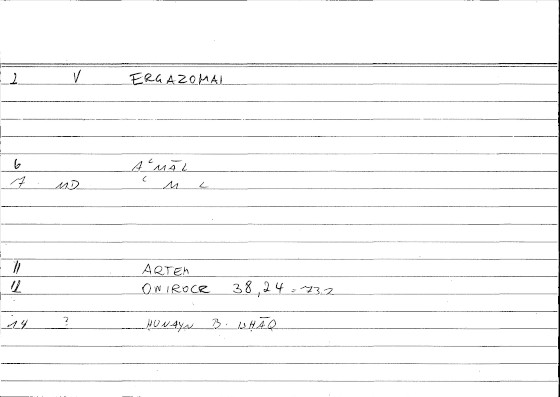 1 V ERGAZOMAI
6 AʿMĀL
7 MD ʿ M L
11 ARTEM
12 ONIROCR 38,24 = 73,2
14 ? HUNAYN B. ISHĀQ